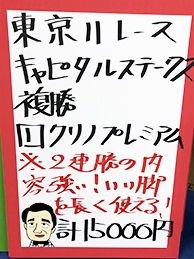 東京11レース
キャピタルステークス
複勝
1 クリノプレミアム
※2連勝の内
容強い！いい脚
を長く使える！
計15000円